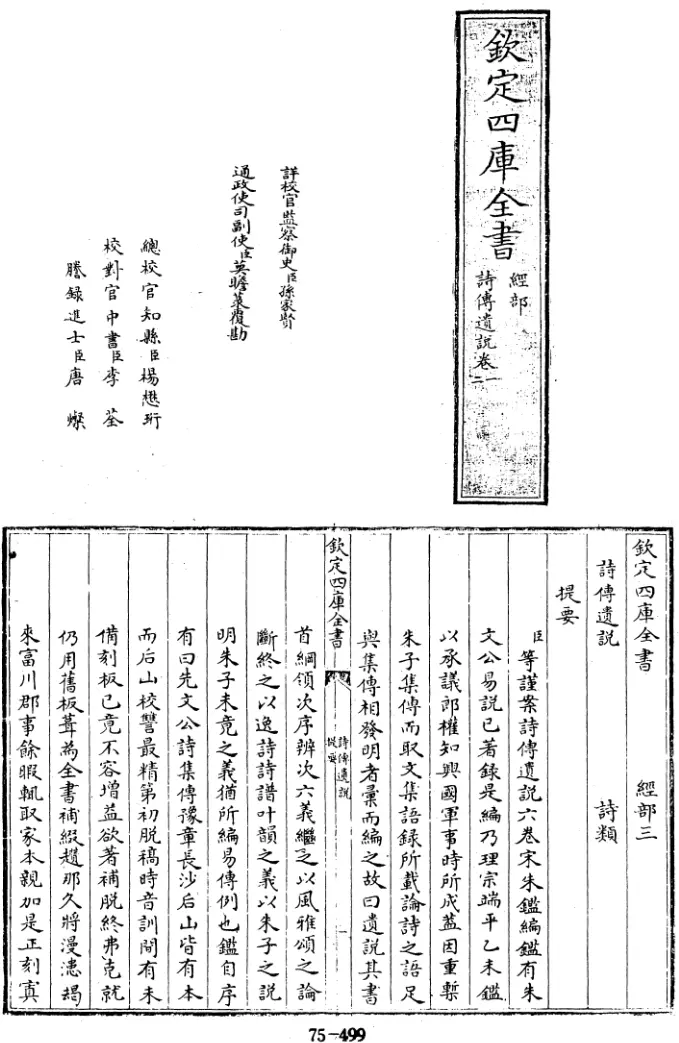 欽定四庫全書
經部
詩傳遺説卷一
二
詳校官監察御史臣孫家賢
通政使司副使臣莫瞻菉覆勘
總校官知縣臣楊懋珩
校對官中書臣李荃
謄録進士臣唐燦
欽定四庫全書 經部三
詩傳遺説 詩類
提要
臣等謹案詩傳遺説六卷宋朱鑑編鑑有朱
文公易説已著録是編乃理宗端平乙未鑑
以承議郎權知興國軍事時所成葢因重槧
朱子集傳而取文集語録所載論詩之語足
與集傳相發明者彙而編之故曰遺説其書
欽定四庫全書
詩傳遺説
提要
一
首綱領次序辨次六義繼之以風雅頌之論
斷終之以逸詩詩譜叶韻之義以朱子之説
明朱子未竟之義猶所編易傳例也鑑自序
有曰先文公詩集傳豫章長沙后山皆有本
而后山校讐最精第初脱稿時音訓間有未
備刻板已竟不容增益欲著補脱終弗克就
仍用舊板葺為全書補綴趲那久將漫漶朅
來富川郡事餘暇輒取家本親加是正刻寘
75-499